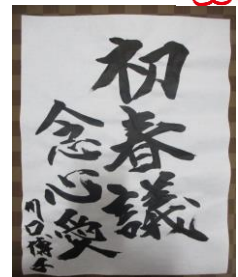 初春議
念心愛
川口